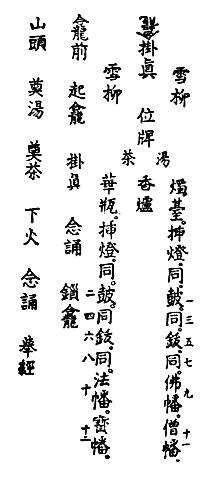 雪柳
燭臺。挿燈。同。鼓。同。鈸。同。佛幡。僧幡。
一 三 五 七 九 十一
龕掛眞 位牌 香爐
湯
茶
雪柳
華瓶。挿燈。同。鼓。同。鈸。同。法幡。寳幡。
二 四 六 八 十 十二
龕前 起龕 掛眞 念誦 鎖龕
山頭 奠湯 奠茶 下火 念誦 擧經